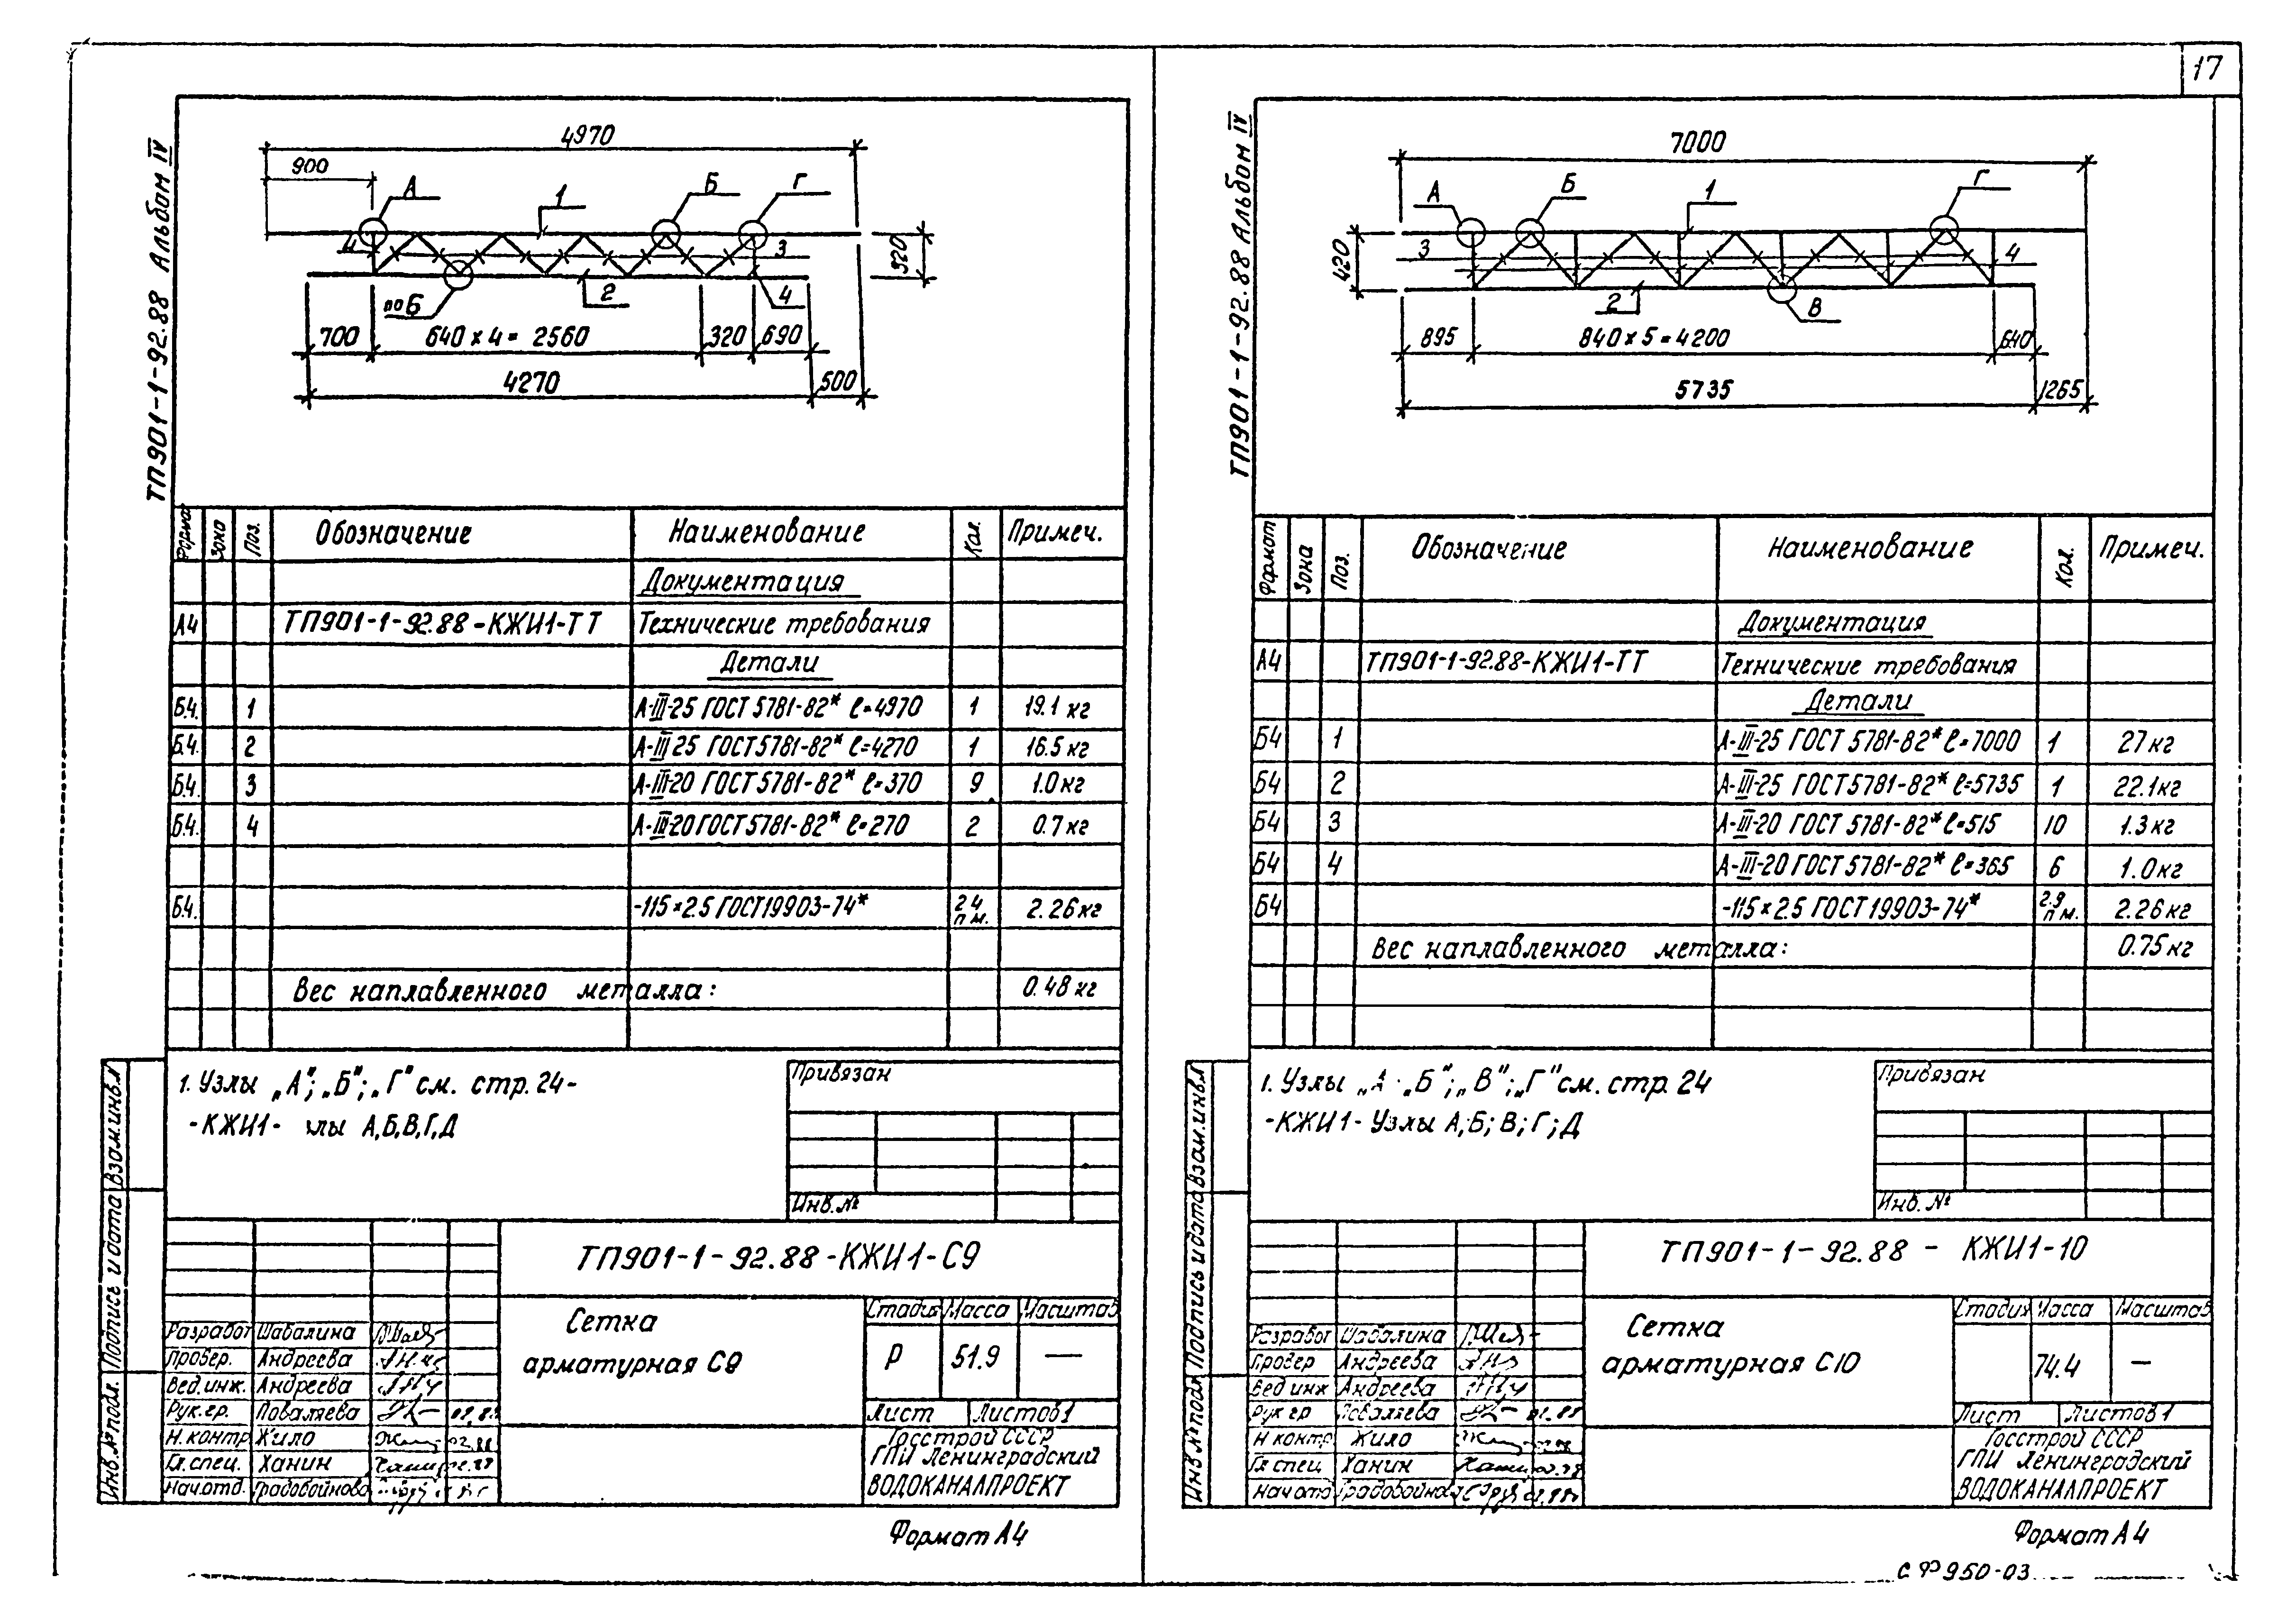 17
ТП901-1-92.88 Альбом IV
4970
900
А
1
Б
Г
4
3
320
по Б
2
4
700
640 х 4 = 2560
320
690
4270
500
Формат
Зона
Поз.
Обозначение
Наименование
Кол.
Примеч.
Документация
А4 ТП901-1-92.88-КЖИ1-ТТ Технические требования
Детали
Б.4. 1 А-III-25 ГОСТ 5781-82* ℓ=4970 1 19.1 кг
Б.4. 2 А-III 25 ГОСТ 5781-82* ℓ=4270 1 16.5 кг
Б.4. 3 А-III-20 ГОСТ 5781-82* ℓ=370 9 1.0 кг
Б.4. 4 А-III-20 ГОСТ 5781-82* ℓ=270 2 0.7 кг
Б.4. -115×2.5 ГОСТ 19903-74* 2.4 п.м. 2.26 кг
Вес наплавленного металла: 0.48 кг
1. Узлы „А"; „Б"; „Г" см. стр. 24-
-КЖИ1- лы А,Б,В,Г,Д
Привязан
Инв. №
Взам.инв.№
Подпись и дата
Инв. № подл.
ТП901-1-92.88-КЖИ1-С9
Сетка
арматурная С9
Стадия Масса Масштаб
Р 51.9 —
Лист Листов 1
Госстрой СССР
ГПИ Ленинградский
ВОДОКАНАЛПРОЕКТ
Разработ Шабалина
Провер. Андреева
Вед.инж. Андреева
Рук.гр. Поваляева
Н.контр Жило 02.88
Гл.спец. Ханин
Нач.отд. Градобойнова
Формат А4
ТП901-1-92.88 Альбом IV
7000
А
Б
1
Г
420
3
4
2
В
895
840 х 5 = 4200
640
5735
1265
Формат
Зона
Поз.
Обозначение
Наименование
Кол.
Примеч.
Документация
А4 ТП901-1-92.88-КЖИ1-ТТ Технические требования
Детали
Б4 1 А-III-25 ГОСТ 5781-82* ℓ=7000 1 27 кг
Б4 2 А-III-25 ГОСТ 5781-82* ℓ=5735 1 22.1 кг
Б4 3 А-III-20 ГОСТ 5781-82* ℓ=515 10 1.3 кг
Б4 4 А-III-20 ГОСТ 5781-82* ℓ=365 6 1.0 кг
Б4 -115×2.5 ГОСТ 19903-74* 2.9 п.м. 2.26 кг
Вес наплавленного металла: 0.75 кг
1. Узлы „А „Б"; „В"; „Г" см. стр. 24
-КЖИ1- Узлы А; Б; В; Г; Д
Привязан
Инв. №
Взам.инв.№
Подпись и дата
Инв № подл
ТП901-1-92.88 - КЖИ1-10
Сетка
арматурная С10
Стадия Масса Масштаб
74.4 —
Лист Листов 1
Госстрой СССР
ГПИ Ленинградский
ВОДОКАНАЛПРОЕКТ
Разработ Шабалина
Провер Андреева
Вед инж Андреева
Рук гр Поваляева
Н контр Жило
Гл спец Ханин
Нач отд Градобойнова
Формат А4
СФ950-03